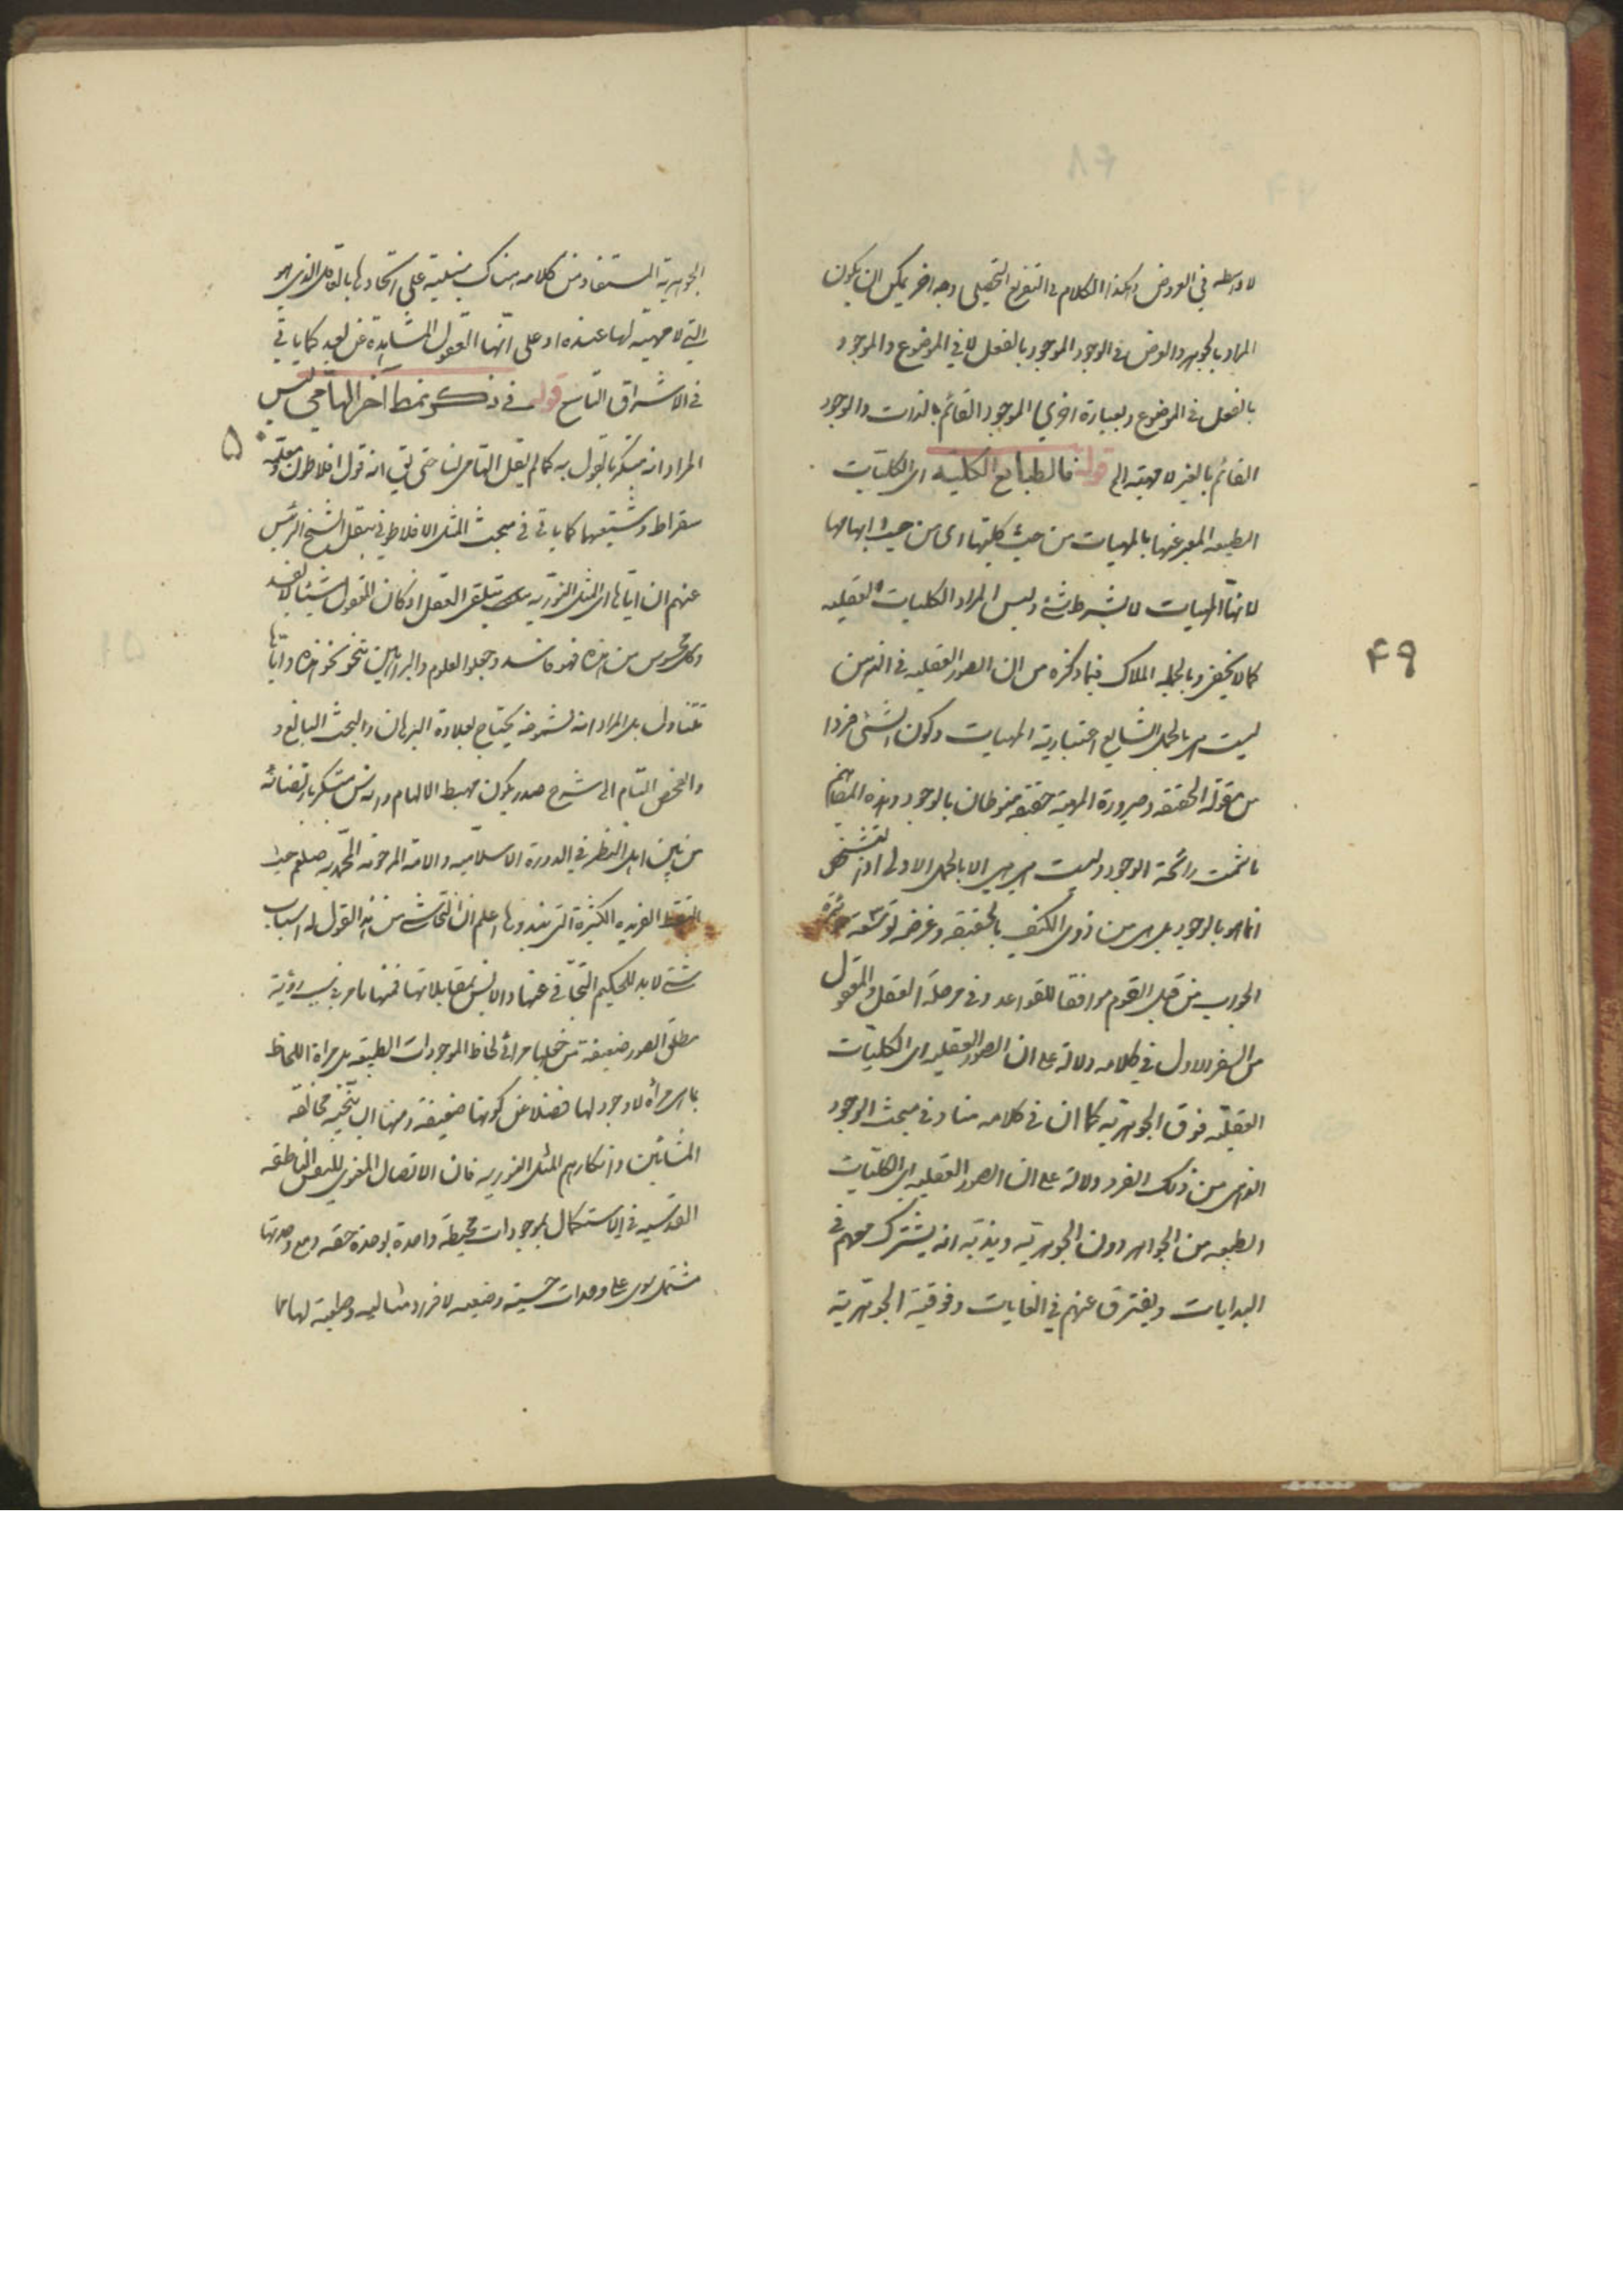 لا واسطه في العروض وهكذا الكلام في التفريع التحصيلي وجه اخر يمكن ان يكون
المراد بالجوهر والعرض في الوجود الموجود بالفعل لا في الموضوع والموجود
بالفعل في الموضوع وبعبارة اخرى الموجود القائم بالذات والوجود
القائم بالغير لا مهيته الخ قوله فالطبايع الكليه اى الكليات
الطبيعه المعبر عنها بالمهيات من حيث كليتها اى من حيث ابهامها
لانها المهيات لا بشرط شئ وليس المراد الكليات العقليه
كما لا يخفى وبالجمله الملاك فيما ذكره من ان الصور العقليه في الذهن
ليست هي بالحمل الشايع اعتباريه المهيات وكون الشئ فردا
من مقوله الحقيقه وصيرورة المهيه حقيقه منوطان بالوجود وهذه المفاهيم
ما شمت رائحة الوجود وليست هي هي الا بالحمل الاولى اذ التشخص
انما هو بالوجود بل هي من ذوى الكيف بالحقيقه وغرضه
الجواب من قبل القوم موافقا للقواعد وفي مرحلة العقل والمعقول
من السفر الاول في كلامه دلالة على ان الصور العقليه اى الكليات
العقليه فوق الجوهريه كما ان في كلامه هنا وفي مبحث الوجود
الذهني من ذلك السفر دلالة على ان الصور العقليه اى الكليات
الطبيعه من الجواهر دون الجوهريه ومذهبه انه يشترك معهم في
البدايات ويفترق عنهم في الغايات وفوقية الجوهريه
۴۹
الجوهريه المستفاد من كلامه هناك مبنيه على اتحادها بالعاقل الذي هو
التي لا مهيه لها عنده او على انها العقول المشاهدة عن بعد كما ياتي
في الاشراق التاسع قوله في ذكر نمط آخر الهامي ليس
المراد انه مبتكر بالقول به كما لم يقل الهامى لنا حتى يق انه قول افلاطون ومعلمه
سقراط وشيعتهما كما ياتي في مبحث المثل الافلاطونيه نقل الشيخ الرئيس
عنهم ان اياها اى المثل النوريه يتلقى العقل اذ كان المعقول شيئا لا يفسد
وكل محسوس من هذه فهو فاسد وجعلوا العلوم والبراهين تنحو نحو هذه واياها
تتناول بل المراد انه لشموخه يحتاج بعلاوة البرهان والبحث البالغ و
والفحص التام الى شرح صدر يكون مهبط الالهام وانه مبتكر بارتضائه
من بين اهل النظر في الدورة الاسلاميه والامة المرحومه المحمديه صلعم حيث
الفريده الكثيرة التى اعلم ان التحاشى من هذا القول له اسباب
شتى لا بد للحكيم التجافي عنها والانس بمقابلاتها فمنها ما مر في رؤية
مطلق الصور ضعيفة من جعلها مرائى لحاظ الموجودات الطبيعيه بل مراة اللحاظ
بما هي مرأة لا وجود لها فضلا عن كونها ضعيفة ومنها مخالفه
المشائين وانكارهم المثل النوريه فان الاتصال المعنوى للنفس الناطقه
القدسيه في الاستكمال بموجودات محيطه واحدة بوحدة حقه ومع وحدتها
مشتمل هي على وحدات حسيه وضعيه لافراد مثاليه وطبيعيه لها كما
۵۰